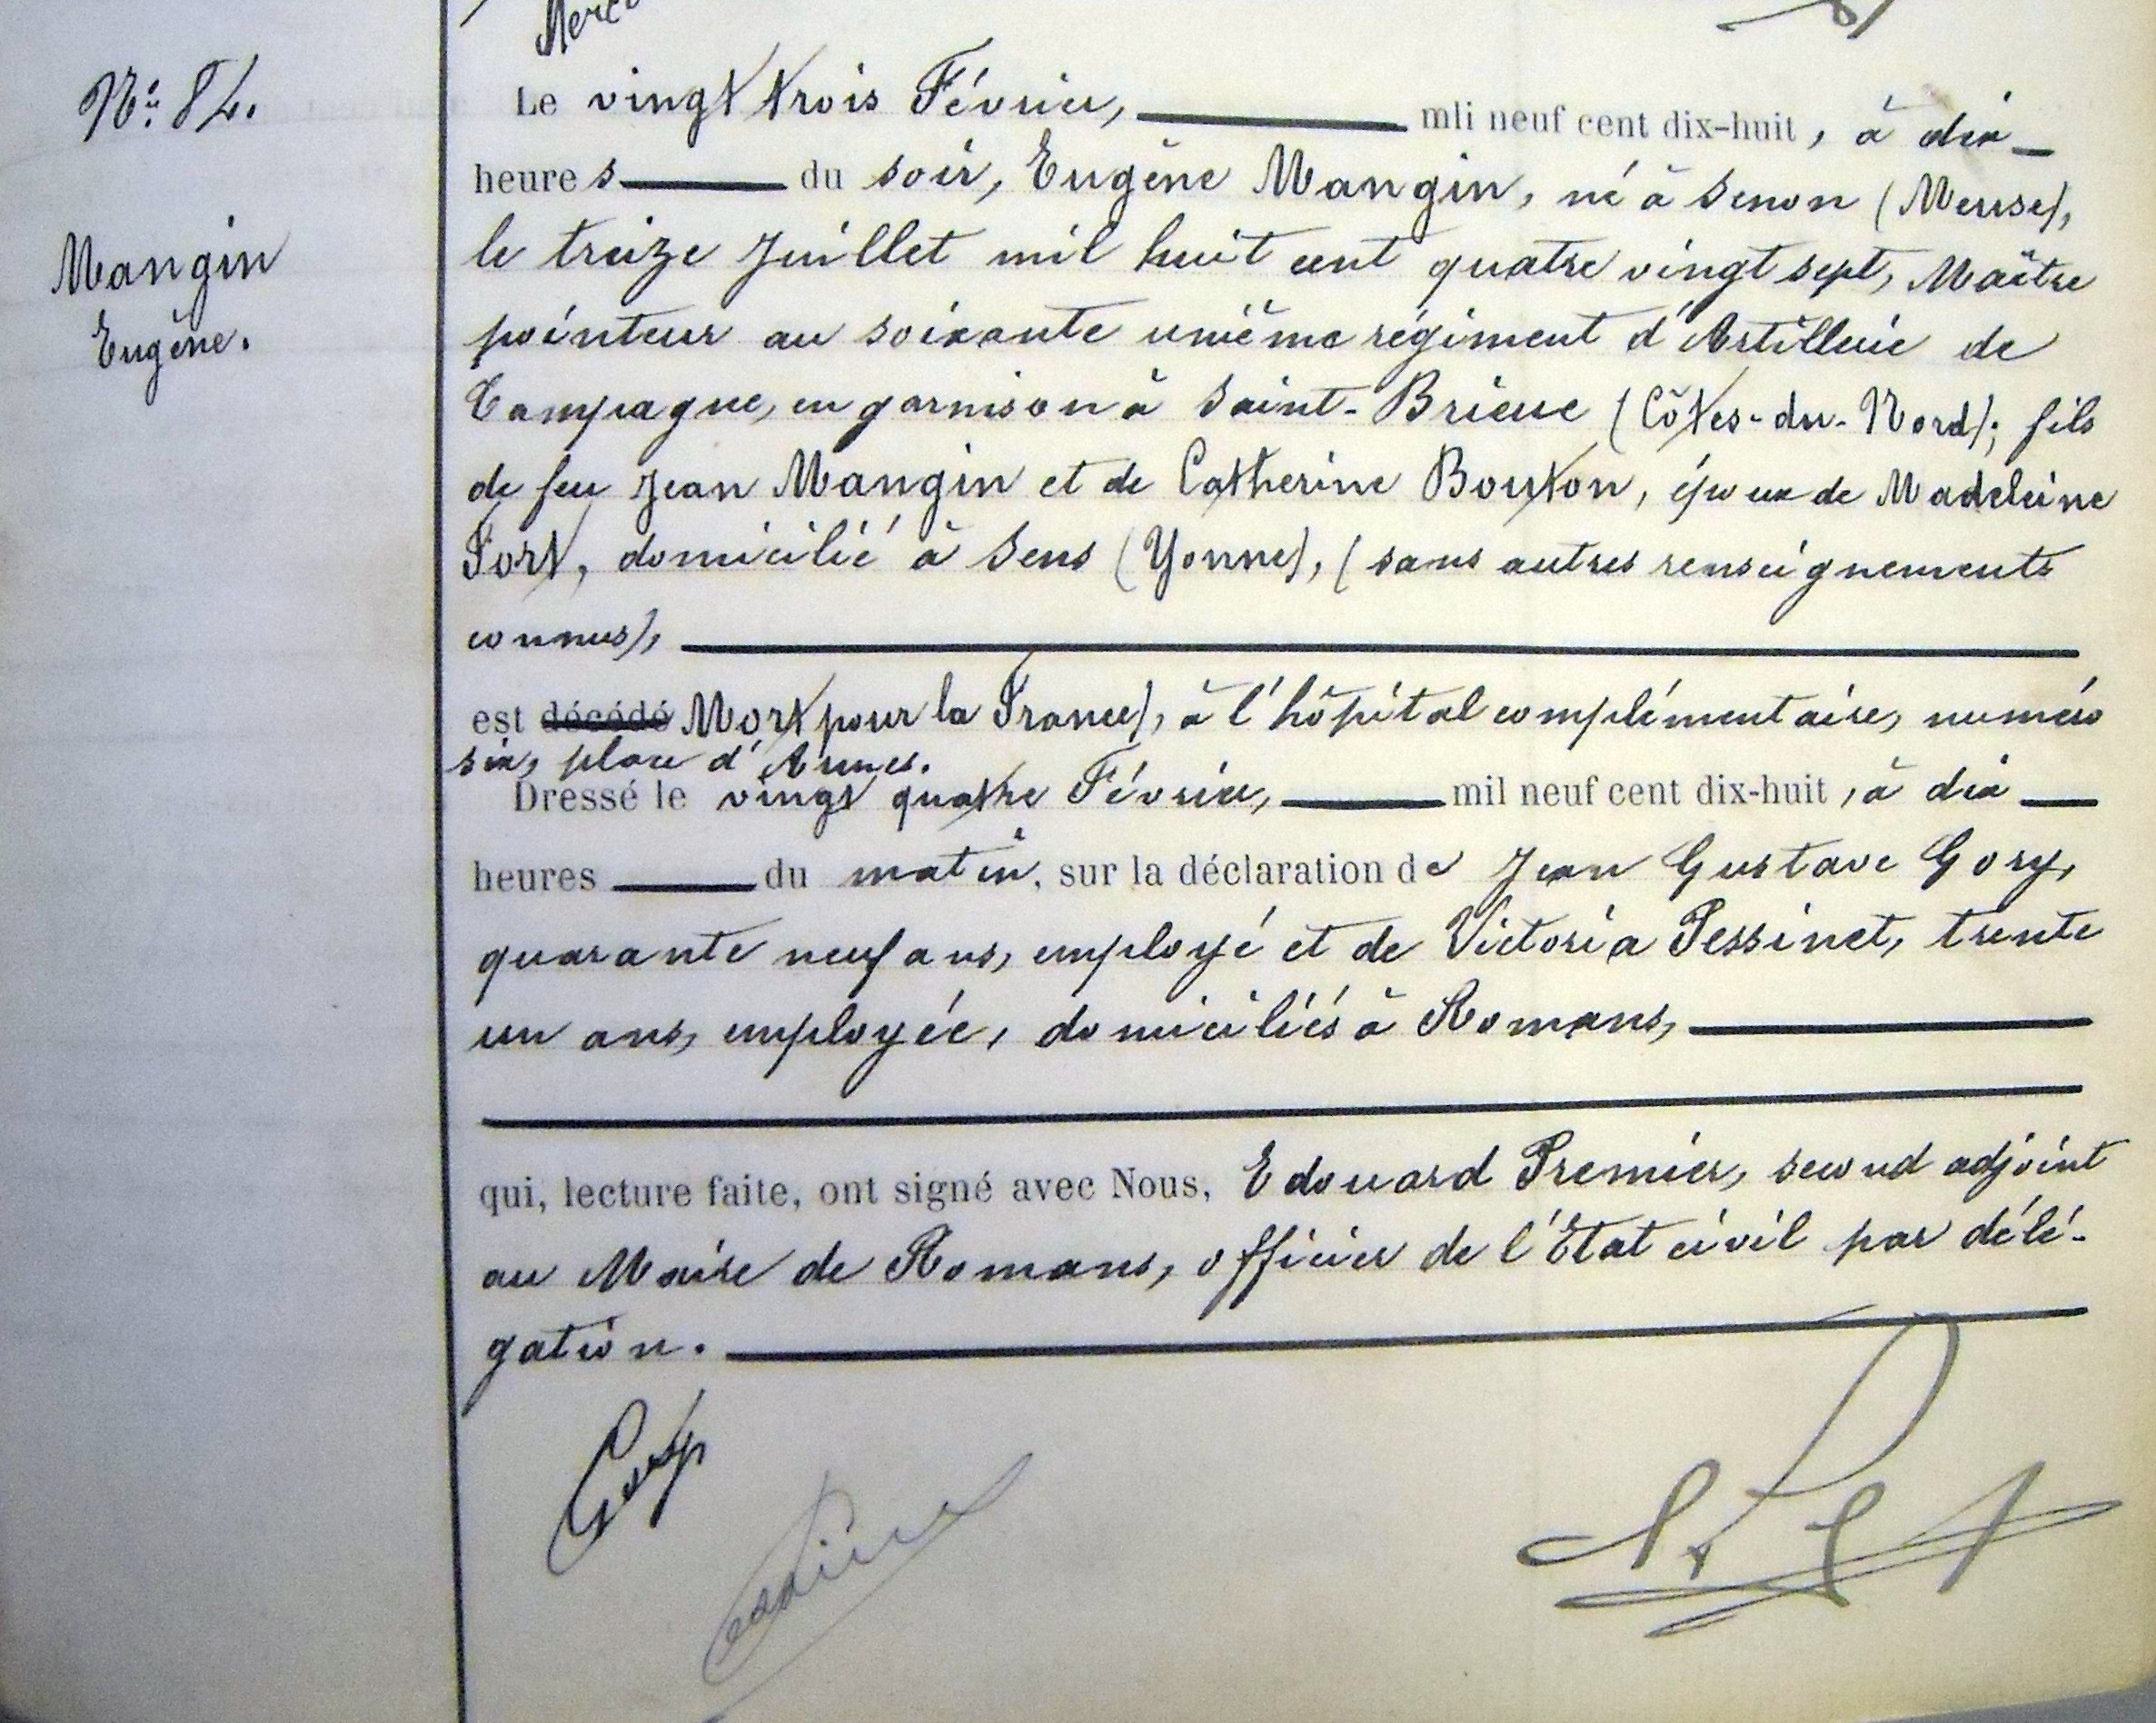 Le vingt trois Février, mli neuf cent dix-huit, à dix
N° 82.
heures du soir, Eugène Mangin, né à Senon (Meuse),
le treize Juillet mil huit cent quatre vingt sept, Maître
Mangin
Eugène.
pointeur au soixante unième régiment d'Artillerie de
Campagne, en garnison à Saint-Brieuc (Côtes-du-Nord); fils
de feu Jean Mangin et de Catherine Bouton, époux de Madeleine
Fort, domicilié à Sens (Yonne), (sans autres renseignements
connus),
est décédé Mort pour la France), à l'hôpital complémentaire, numéro
six, place d'Armes.
Dressé le vingt quatre Février, mil neuf cent dix-huit, à dix
heures du matin, sur la déclaration de Jean Gustave Gory,
quarante neuf ans, employé et de Victoria Pessinet, trente
un ans, employée, domiciliés à Romans,
qui, lecture faite, ont signé avec Nous, Edouard Premier, second adjoint
au Maire de Romans, officier de l'Etat civil par délé-
gation.
Gory